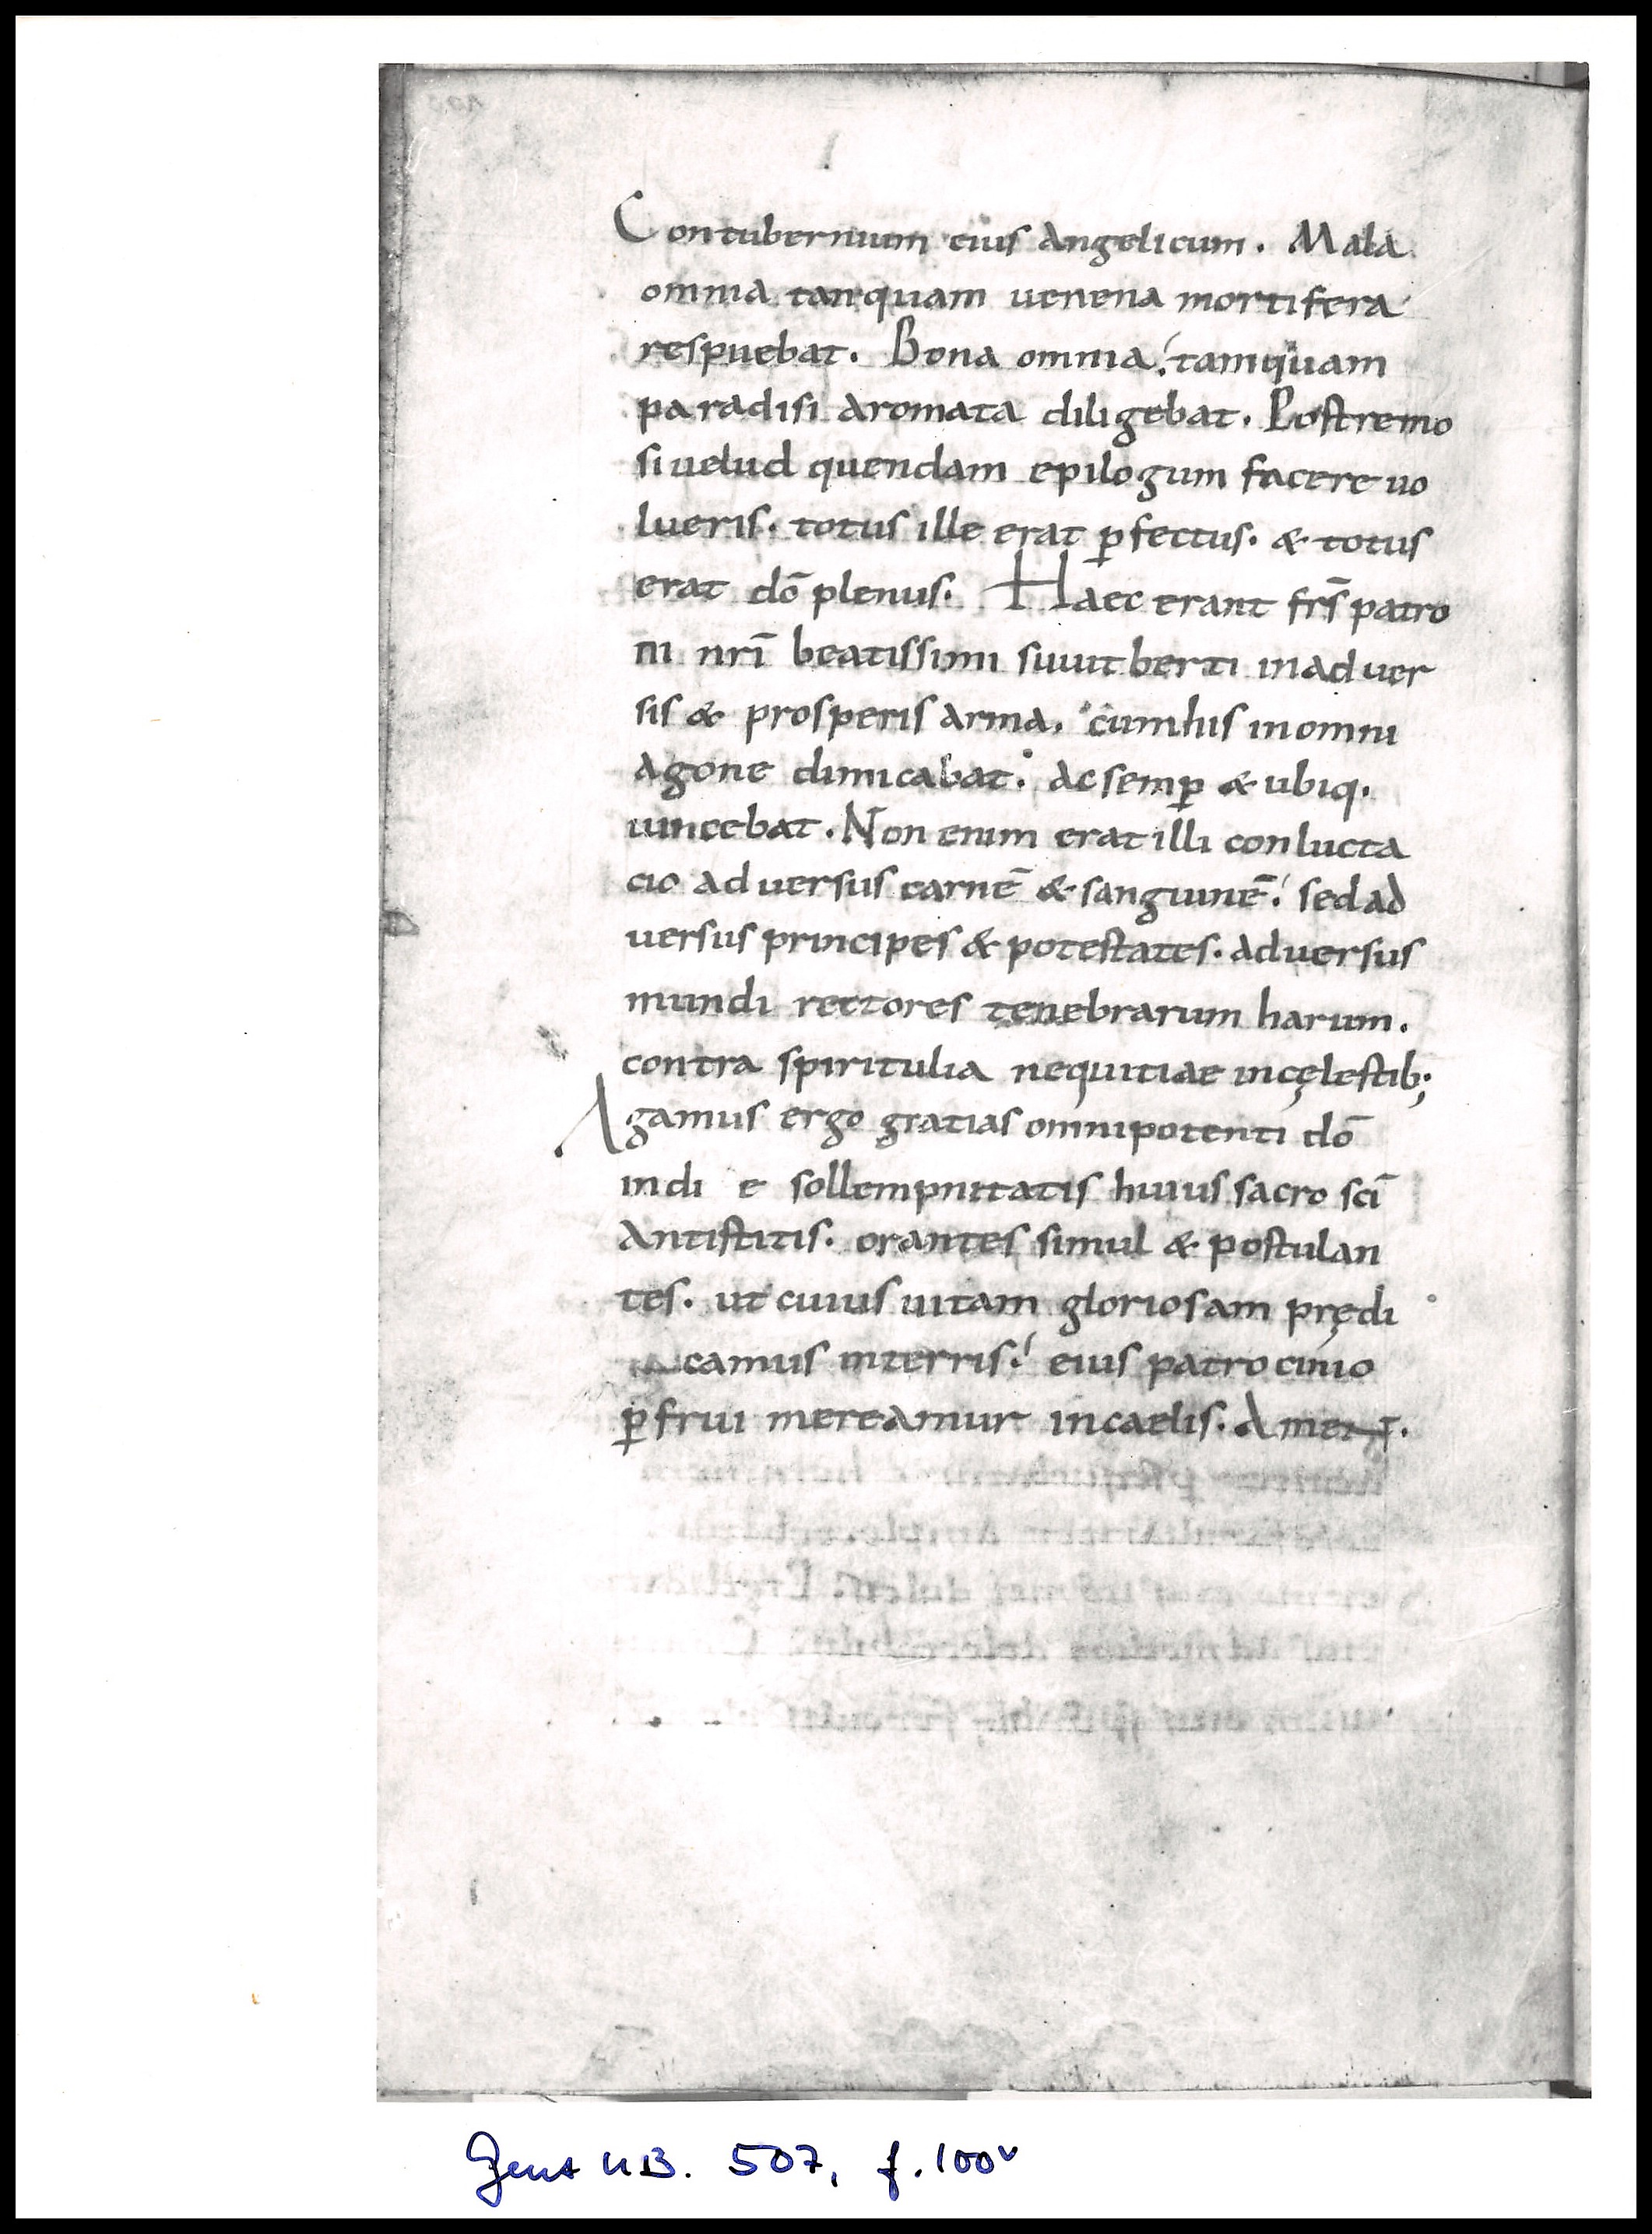 Contubernium eius angelicum. Mala
omnia tanquam uenena mortifera
respuebat. Bona omnia. tamquam
paradisi aromata diligebat. Postremo
si uelud quendam epilogum facere uo
lueris. totus ille erat ꝑfectus. & totus
erat dō plenus. Haec erant frs̄ patro
ni nrī beatissimi suuitberti inaduer
sis & prosperis arma. cumhis inomni
agone dimicabat. ac semꝑ & ubiq.
uincebat. Non enim erat illi conlucta
cio aduersus carnē & sanguinē. sed ad
uersus principes & potestates. aduersus
mundi rectores tenebrarum harum.
contra spiritulia nequitiae incęlestib;
Agamus ergo gratias omnipotenti dō
indi e sollempnitatis huius sacro scī
Antistitis. orantes simul & postulan
tes. ut cuius uitam gloriosam prędi
camus interris. eius patrocinio
ꝑfrui mereamur incaelis. Amen.
Gent UB. 507, f. 100v